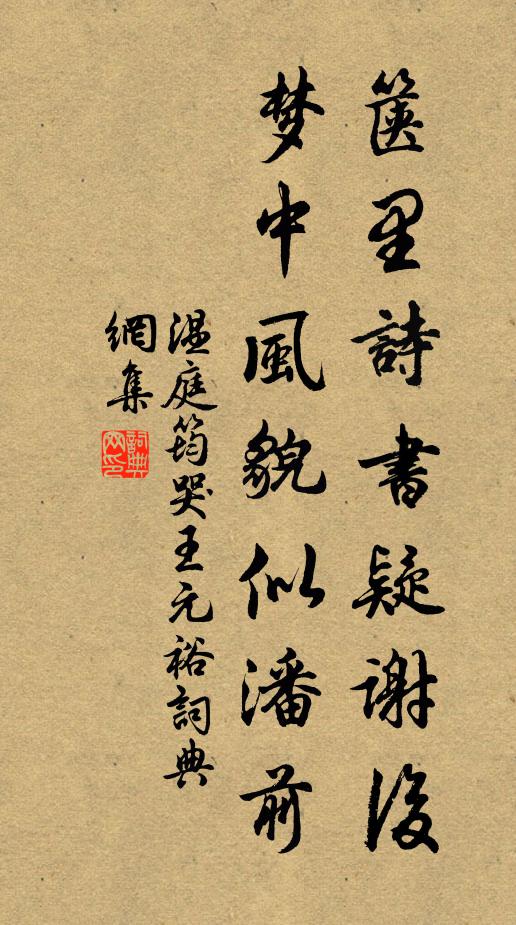 篋里詩書疑謝後
梦中風貌似潘前
温庭筠哭王元裕詞典
網集
詞典
网印